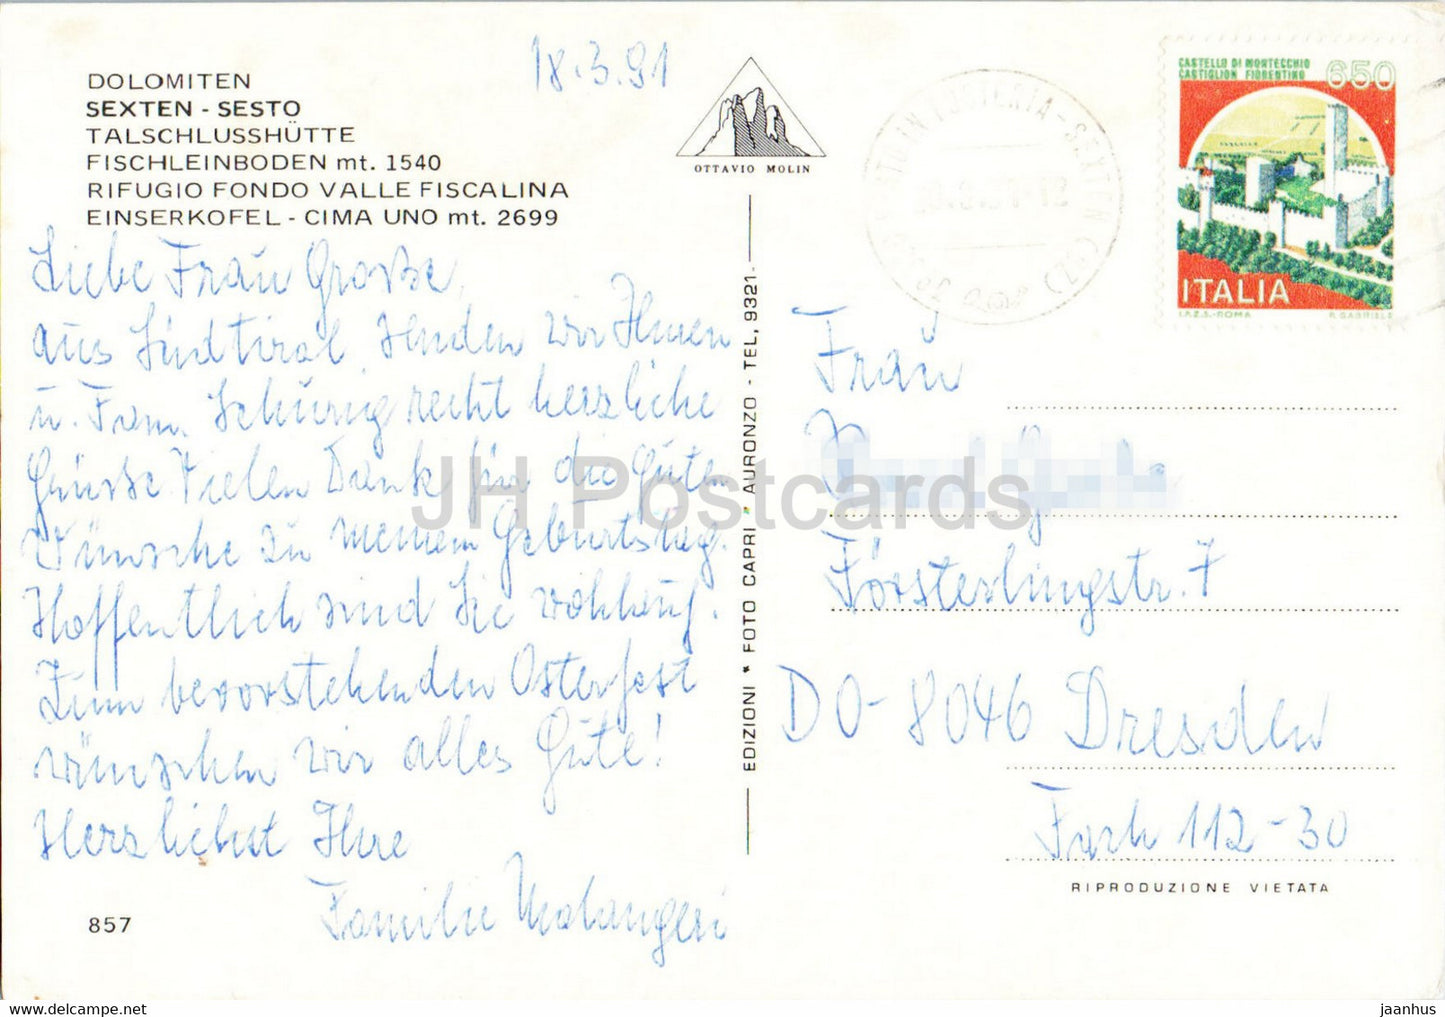 18.3.91
DOLOMITEN
SEXTEN - SESTO
TALSCHLUSSHÜTTE
FISCHLEINBODEN mt. 1540
RIFUGIO FONDO VALLE FISCALINA
EINSERKOFEL - CIMA UNO mt. 2699
Liebe Frau Große,
aus Südtirol senden wir Ihnen
u. Fam. Schurig recht herzliche
Grüsse. Vielen Dank für die guten
Wünsche zu meinem Geburtstag.
Hoffentlich sind Sie wohlauf.
Zum bevorstehenden Osterfest
wünschen wir alles Gute!
Herzlichst Ihre
Familie
857
OTTAVIO MOLIN
EDIZIONI * FOTO CAPRI * AURONZO - TEL, 9321
CASTELLO DI MONTECCHIO
CASTIGLION FIORENTINO
650
ITALIA
I.P.Z.S.-ROMA
Frau
Försterlingstr. 7
DO-8046 Dresden
Fach 112-30
RIPRODUZIONE VIETATA
JH Postcards
jaanhus